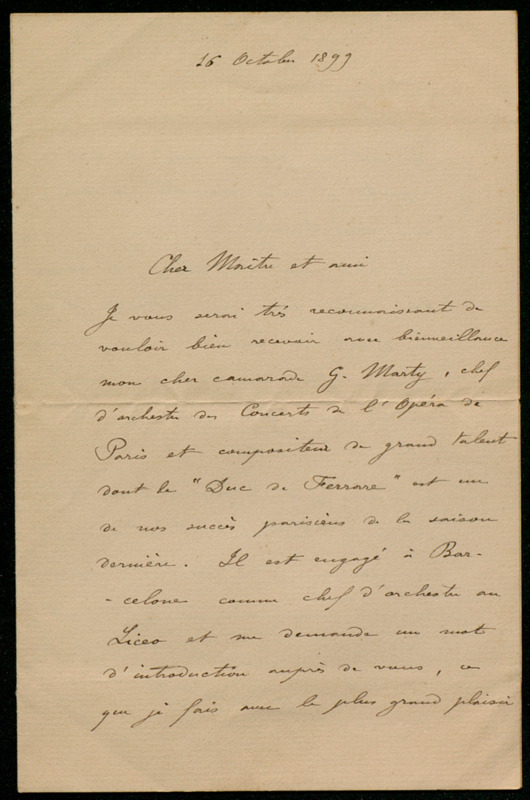 16 Octobre 1899
Cher Maître et ami
Je vous serai très reconnaissant de
vouloir bien recevoir avec bienveillance
mon cher camarade G. Marty, chef
d'orchestre des Concerts de l'Opéra de
Paris et compositeur de grand talent
dont le "Duc de Ferrare" est un
de nos succès parisiens de la saison
dernière. Il est engagé à Bar-
-celone comme chef d'orchestre au
Liceo et me demande un mot
d'introduction auprès de vous, ce
que je fais avec le plus grand plaisir